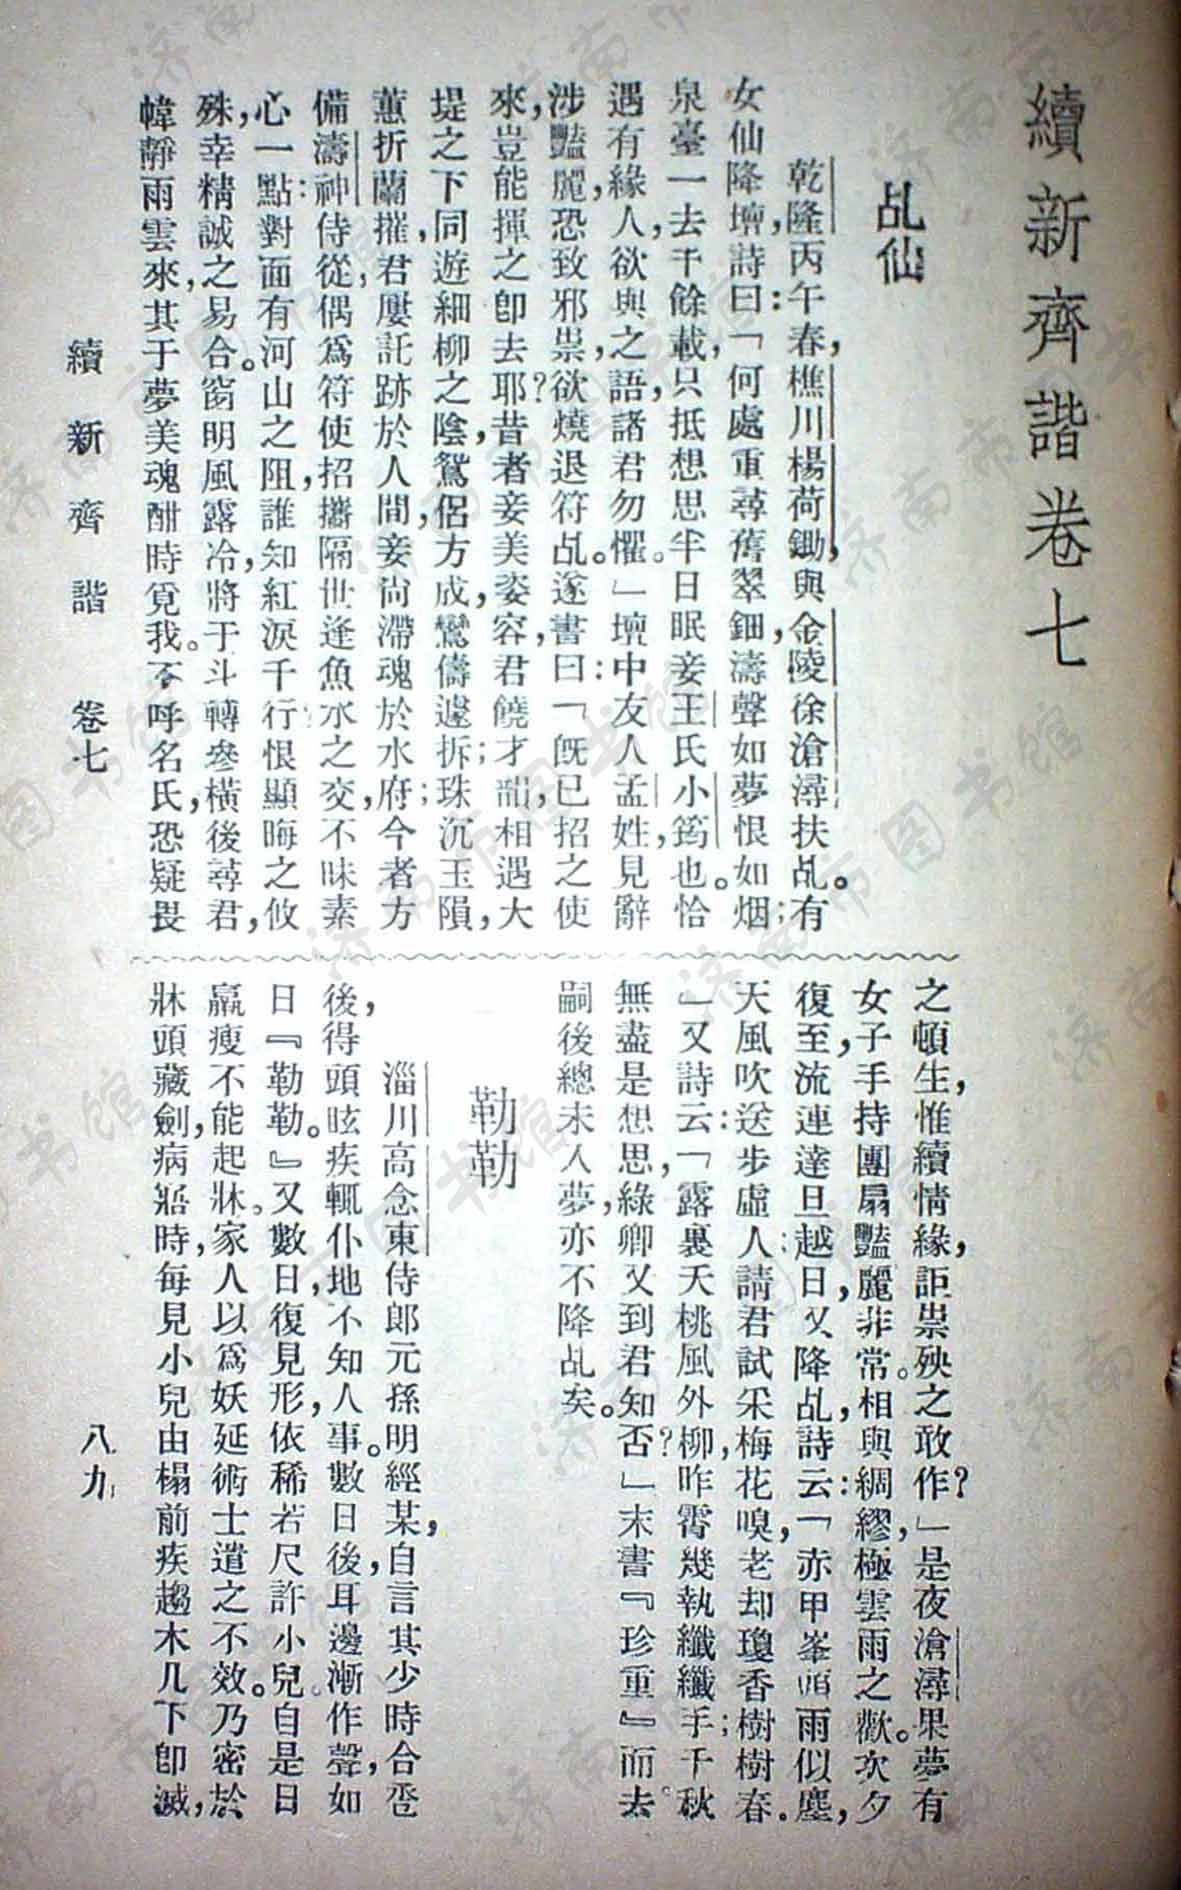 續新齊諧卷七
乩仙
乾隆丙午春，樵川楊荷鋤，與金陵徐滄潯扶乩。有
女仙降壇，詩曰：「何處重尋舊翠鈿，濤聲如夢恨如烟；
泉臺一去千餘載，只抵想思半日眠。妾王氏小筠也。恰
遇有緣人，欲與之語，諸君勿懼。」壇中友人孟姓，見辭
涉豔麗，恐致邪祟，欲燒退符乩。遂書曰：「既已招之使
來，豈能揮之卽去耶？昔者妾美姿容，君饒才韻，相遇大
堤之下，同遊細柳之陰，鴛侶方成，鸞儔遽拆；珠沉玉隕，
蕙折蘭摧，君屢託跡於人間，妾尙滯魂於水府；今者方
備濤神侍從，偶爲符使招攜，隔世逢魚水之交，不昧素
心一點；對面有河山之阻，誰知紅淚千行，恨顯晦之攸
殊，幸精誠之易合。窗明風露冷，將于斗轉參橫後尋君，
幃靜雨雲來，其于夢美魂酣時覓我。不呼名氏，恐疑畏
之頓生，惟續情緣，詎祟殃之敢作？」是夜滄潯果夢有
女子手持團扇，豔麗非常。相與綢繆，極雲雨之歡。次夕
復至，流連達旦；越日，又降乩，詩云：「赤甲峯 雨似塵，
天風吹送步虛人；請君試采梅花嗅，老却瓊香樹樹春。
」又詩云：「露裏夭桃風外柳，昨霄幾執纖纖手；千秋
無盡是想思，綠卿又到君知否？」末書『珍重』而去。
嗣後總未入夢，亦不降乩矣。
勒勒
淄川高念東侍郎元孫明經某，自言其少時合巹
後，得頭眩疾，輒仆地，不知人事。數日後，耳邊漸作聲，如
日『勒勒。』又數日，復見形，依稀若尺許小兒。自是日
羸瘦不能起牀。家人以爲妖，延術士遣之不效。乃密於
牀頭藏劍，病寤時，每見小兒由榻前疾趨木几下卽滅，
續新齊諧　卷七
八九